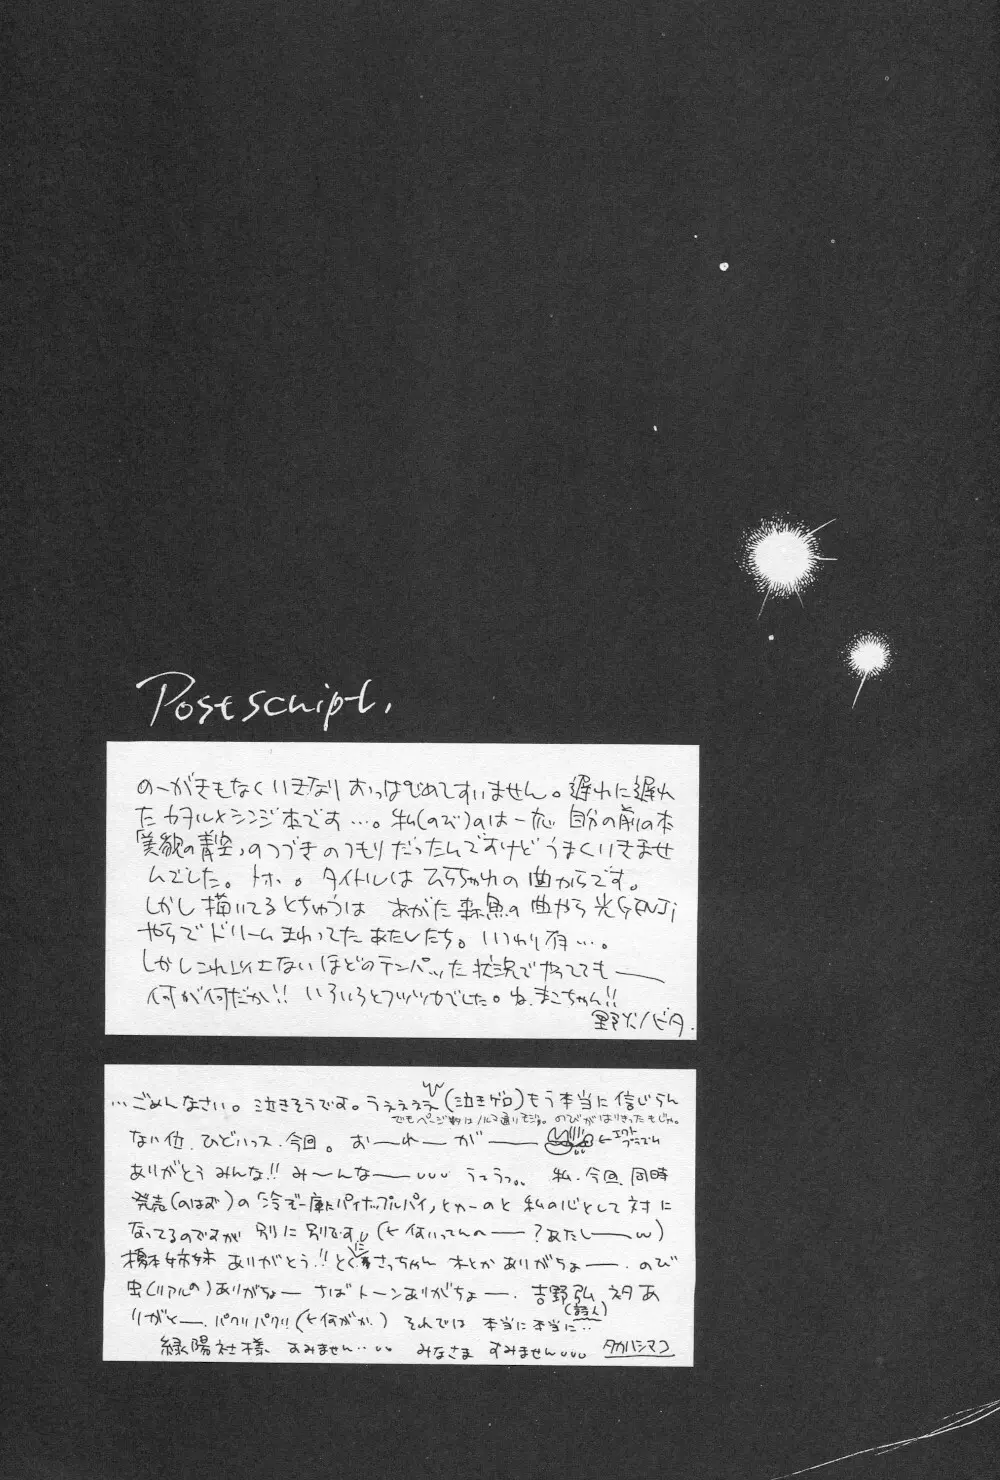 Postscript.
のーがきもなくいきなりおっぱじめてすいません。遅れに遅れ
たカヲル×シンジ本です…。私(のび)のは一応 自分の前の本
「美貌の青空」のつづきのつもりだったんですけどうまくいきませ
んでした。トホ。タイトルは の曲からです。
しかし描いてるとちゅうは あがた森魚の曲やら光GENJI
やらでドリームまわってたあたしたち。いつわり有…。
しかしこれ以上ないほどのテンパった状況でやってても——
何が何だか!! いろいろとフツツカでした。ね、まこちゃん!!
野火ノビタ.
…ごめんなさい。泣きそうです。うぇぇぇぇ(泣きゲロ)もう本当に信じらん
でもページ数はノルマ通りモジョ。のびがはりきったもじゃ。
ない位、ひどいっス、今回。おーれーがー—— ←エクト
プラズム
ありがとうみんな!! みーんなー—— うっうっ。。 私、今回、同時
発売(のはず)の「冷ぞー庫にパイナップルパイ」とかーのと 私の心として対に
なってるのですが 別に別です。(←何いってんのー—?あたし—)
橋本姉妹 ありがとう!!とくにまさっちゃん ありがちょー—. のび
虫(リアルの)ありがちょー さばトーンありがちょー—. 吉野弘 ネタあ
(詩人)
りがとー—. パクリパクリ(←何がか.) それでは 本当に本当に‥
緑陽社様 すみません‥ みなさま すみません タカハシマコ